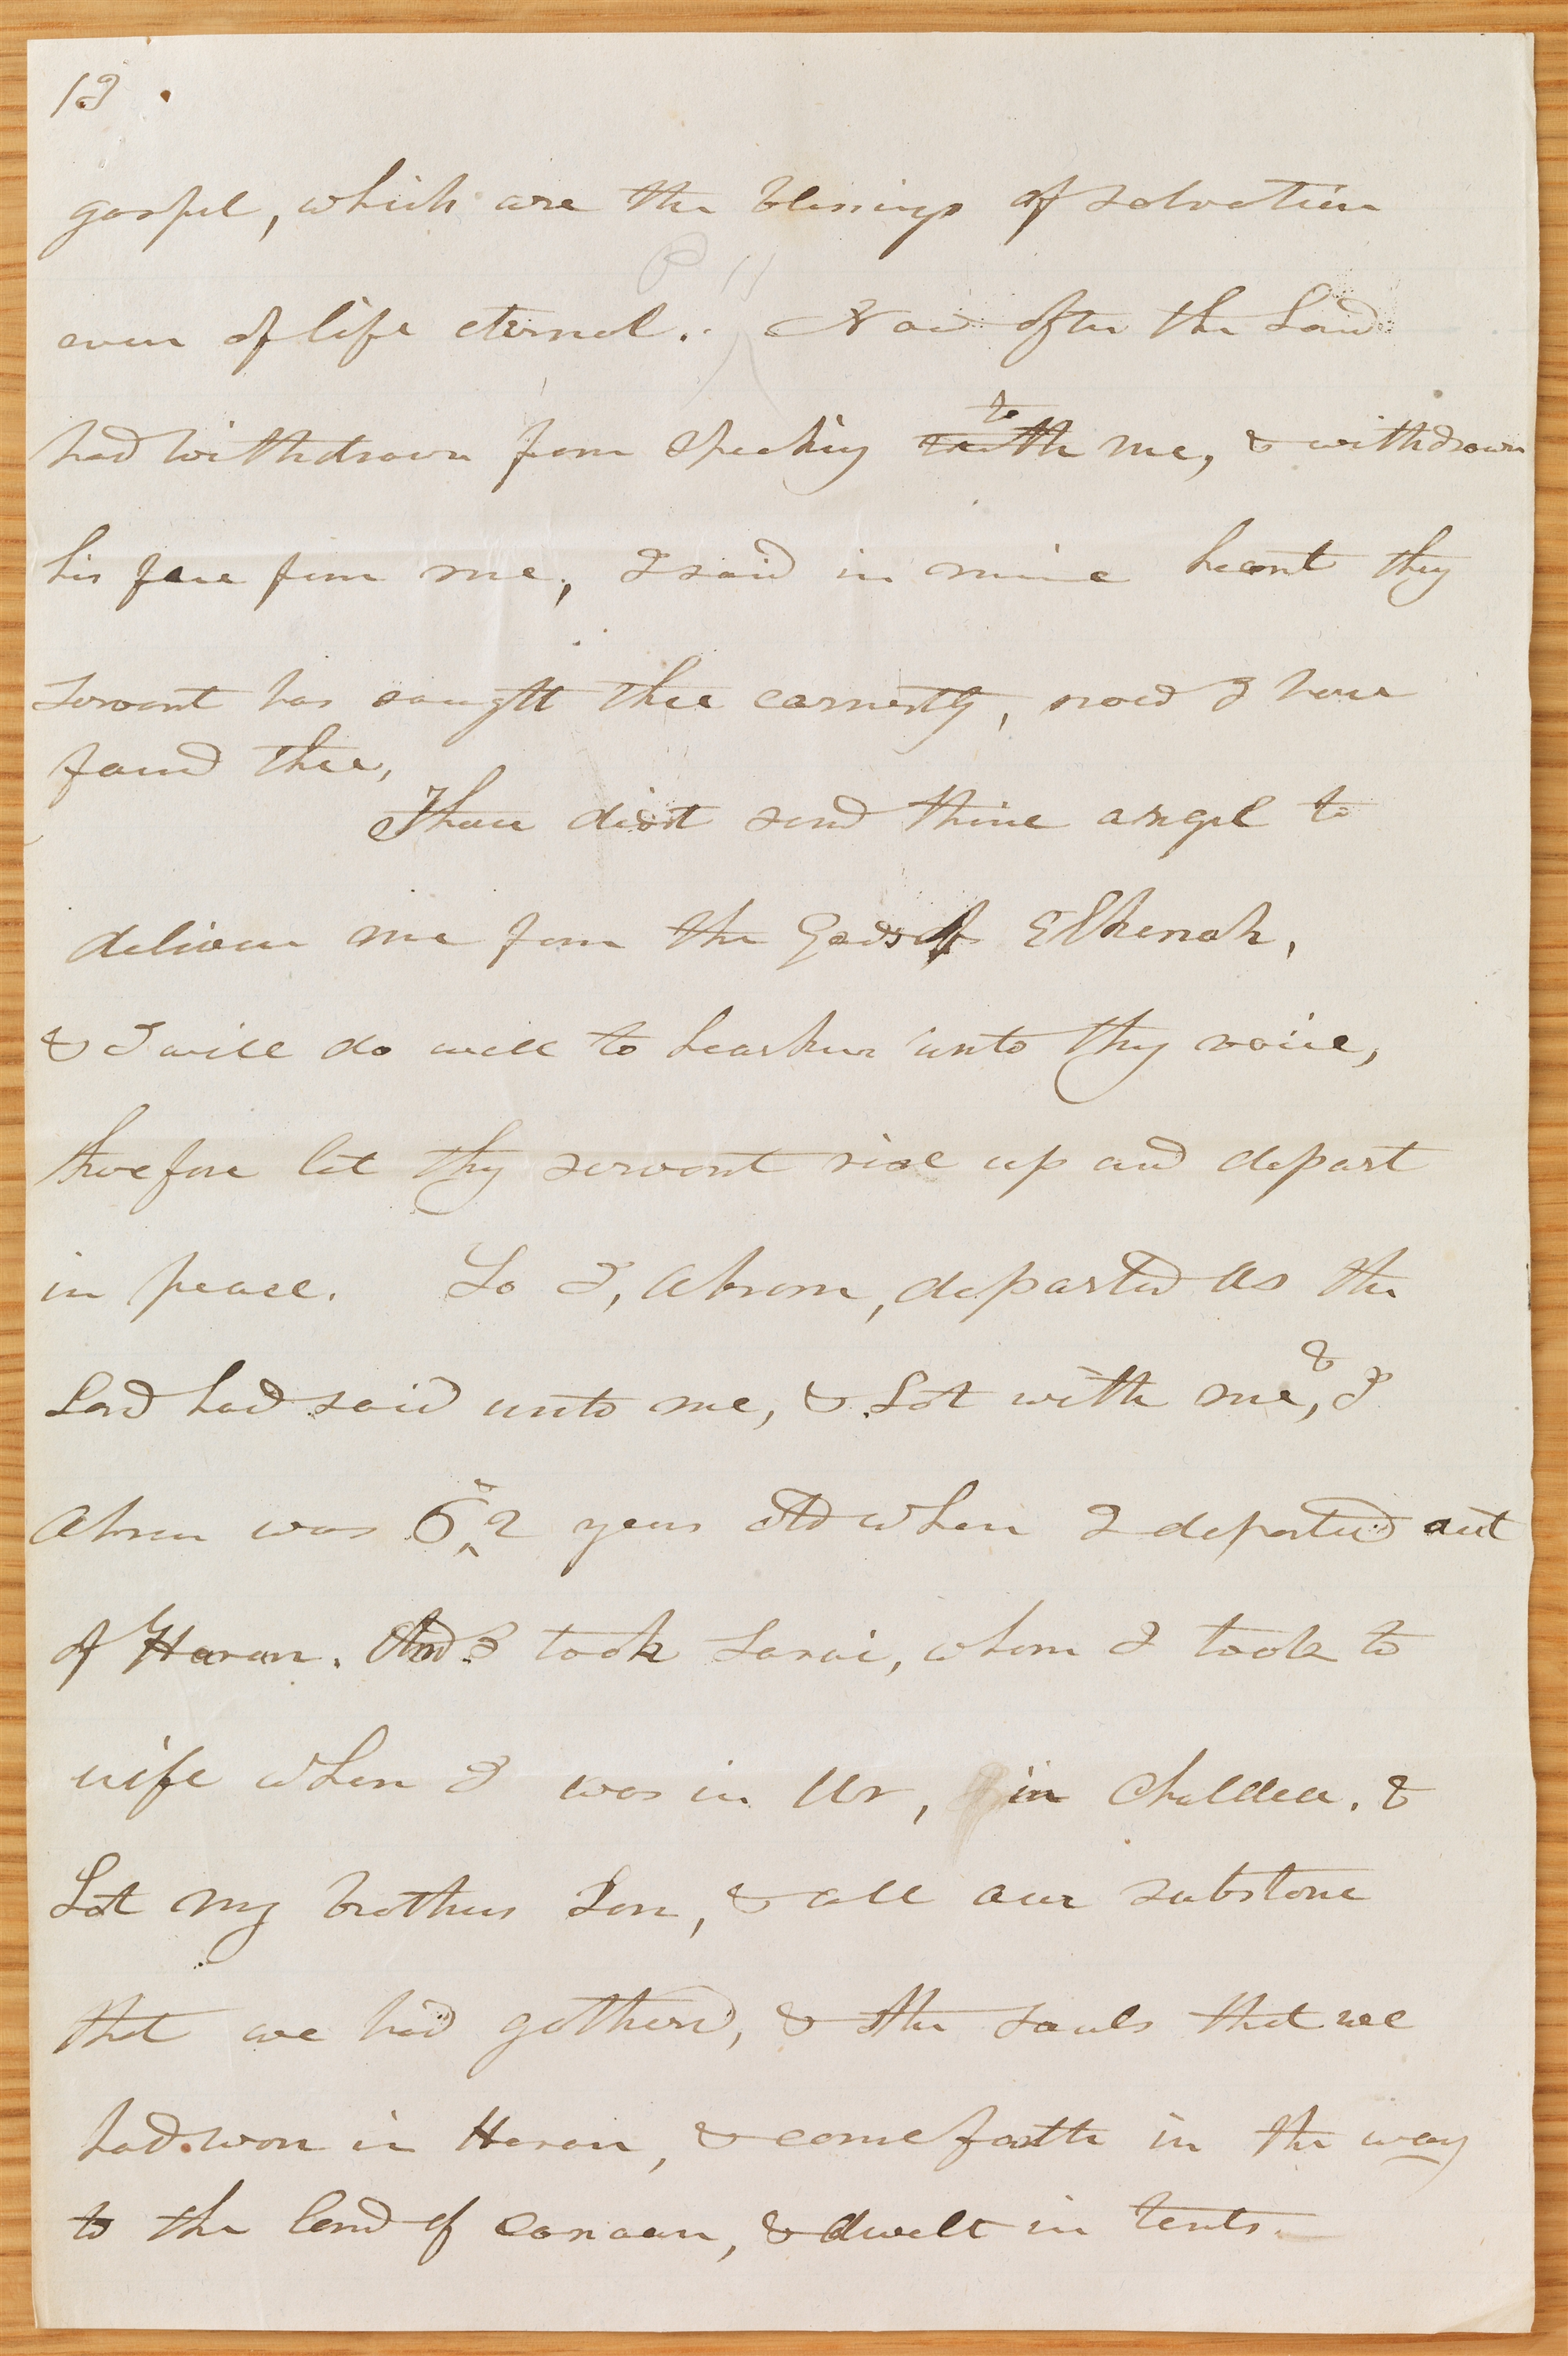 13
gospel, which are the blessings of salvation
P 11
even of life eternal. Now after the Lord
to
had withdrawn from speaking with me, & withdrawn
his face from me, I said in mine heart thy
servant has sought thee earnestly, now I have
found thee,
Thou didst send thine angel to
deliver me from the Gods of Elkenah,
& I will do well to hearken unto thy voice,
therefore let thy servant rise up and depart
in peace. So I, Abram, departed as the
Lord had said unto me, & Lot with me, & I
Abram was 62 years old when I departed out
of Haran. And I took Sarai, whom I took to
wife when I was in Ur, in Chaldea. &
Lot my brothers Son, & all our substance
that we had gathered, & the souls that we
had won in Haran, & come forth in the way
to the land of Canaan, & dwelt in tents.